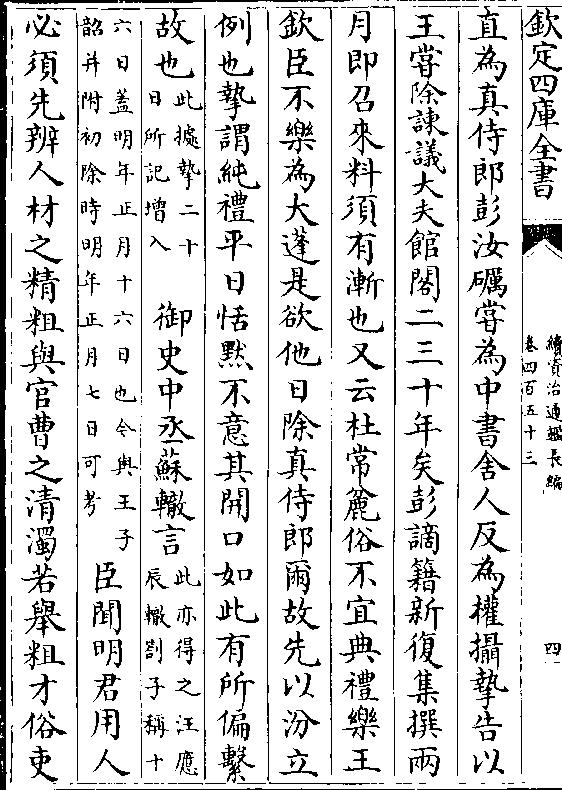 欽定四庫全書
續資治通鑑長編
卷四百五十三
四
直為真侍郎彭汝礪嘗為中書舍人反為權攝摯告以
王嘗除諫議大夫館閣二三十年矣彭謫籍新復集撰兩
月即召來料須有漸也又云杜常麄俗不宜典禮樂王
欽臣不樂為大蓬是欲他日除真侍郎爾故先以汾立
例也摯謂純禮平日恬默不意其開口如此有所偏繫
故也此據摯二十
日所記增入
御史中丞蘇轍言此亦得之汪應
辰轍劄子稱十
六日蓋明年正月十六日也令與王子
韶并附初除時明年正月七日可考
臣聞明君用人
必須先辨人材之精粗與官曹之清濁若舉粗才俗吏